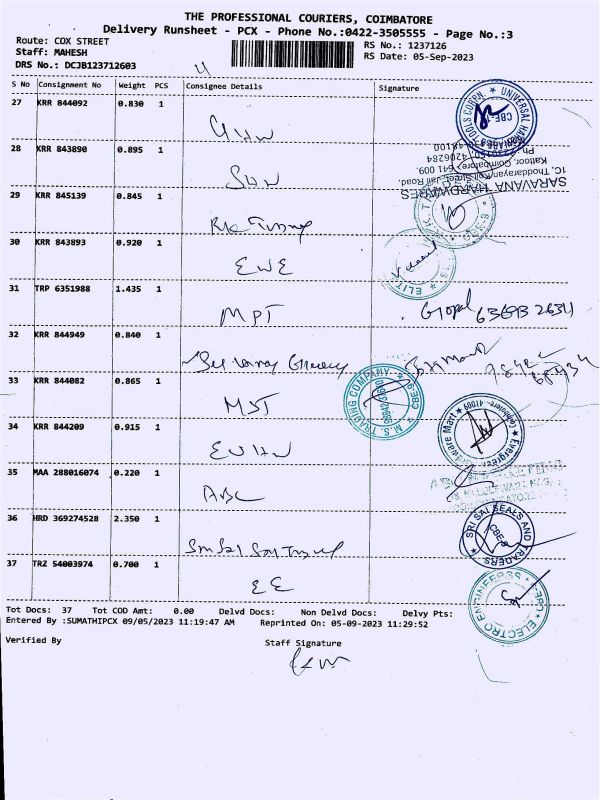 THE PROFESSIONAL COURIERS, COIMBATORE
Delivery Runsheet - PCX - Phone No.:0422-3505555 - Page No.:3
Route: COX STREET
RS No.: 1237126
Staff: MAHESH
RS Date: 05-Sep-2023
DRS No.: DCJB123712603
S No Consignment No Weight PCS Consignee Details Signature
27 KRR 844092 0.830 1
UHW
28 KRR 843890 0.895 1
SHW
SARAVANA HARDWARES
1C, Thodarayan Koil Street, Jail Road,
Kattoor, Coimbatore - 641 009.
29 KRR 845139 0.845 1
30 KRR 843893 0.920 1
EWE
31 TRP 6351988 1.435 1
MPT Gopal 63693 26311
32 KRR 844949 0.840 1
33 KRR 844082 0.865 1
MST
M.S. TRADING COMPANY CBE-9
34 KRR 844209 0.915 1
EUHW
35 MAA 288016074 0.220 1
ABC
36 HRD 369274528 2.350 1
SRI SAI SEALS AND TRADERS CBE-9
37 TRZ 54003974 0.700 1
EE
ELECTRO ENGINEERS CBE
Tot Docs: 37 Tot COD Amt: 0.00 Delvd Docs: Non Delvd Docs: Delvy Pts:
Entered By :SUMATHIPCX 09/05/2023 11:19:47 AM Reprinted On: 05-09-2023 11:29:52
Verified By Staff Signature